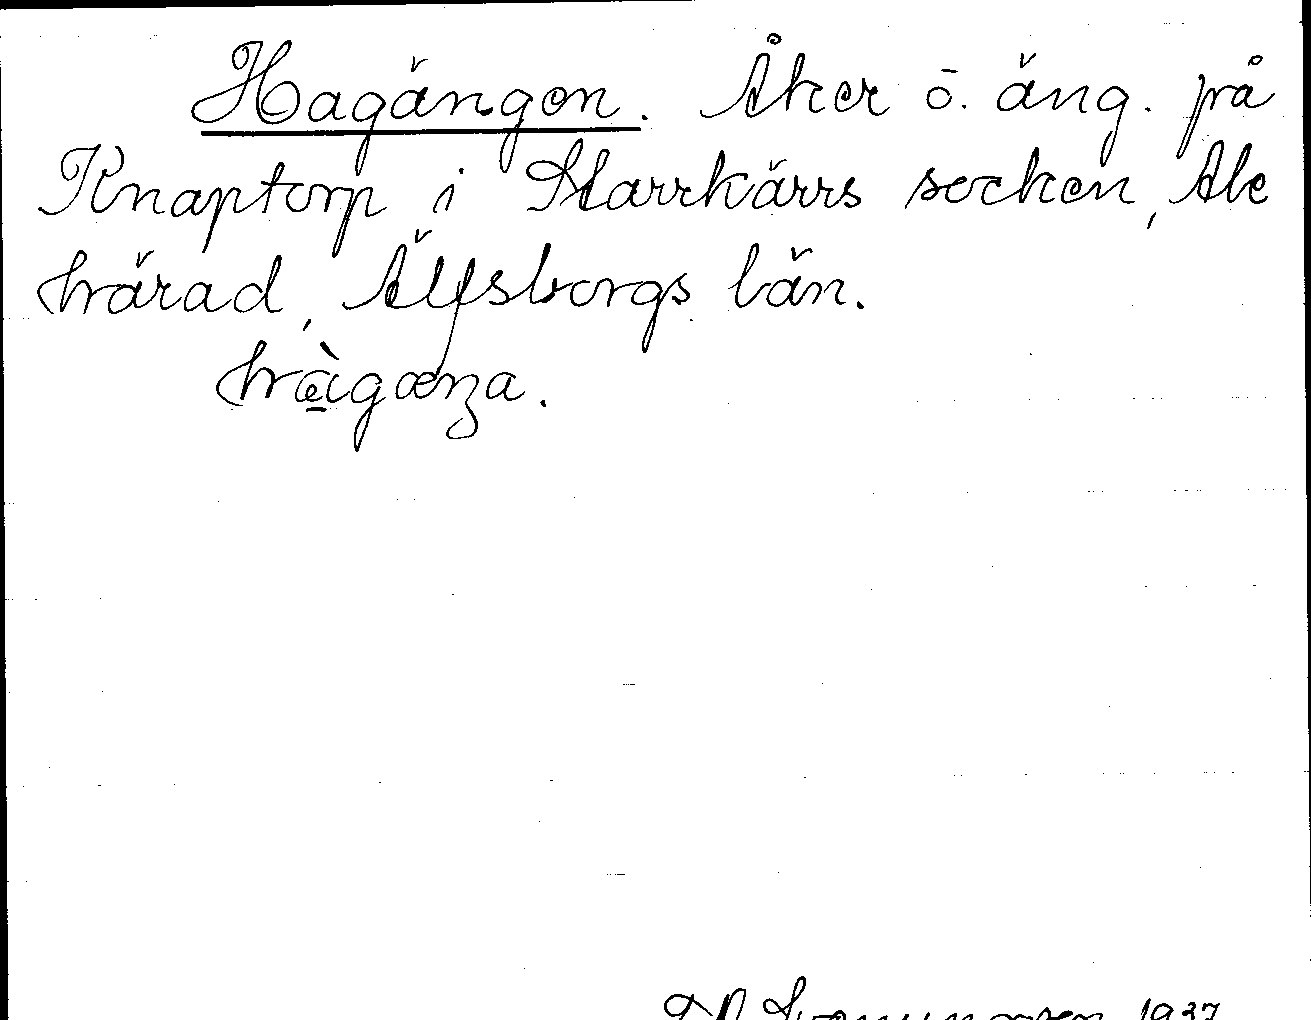 Hagängen. Åker ō. äng. på
Knaptorp i Starrkärrs socken, Ale
härad, Älfsborgs län.
hàgæŋa.
1937